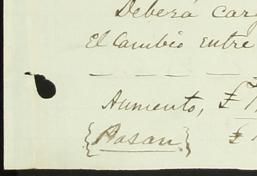 Deberá carg
El Cambio entre
Aumento, £ 1
{Pasan} £ 1